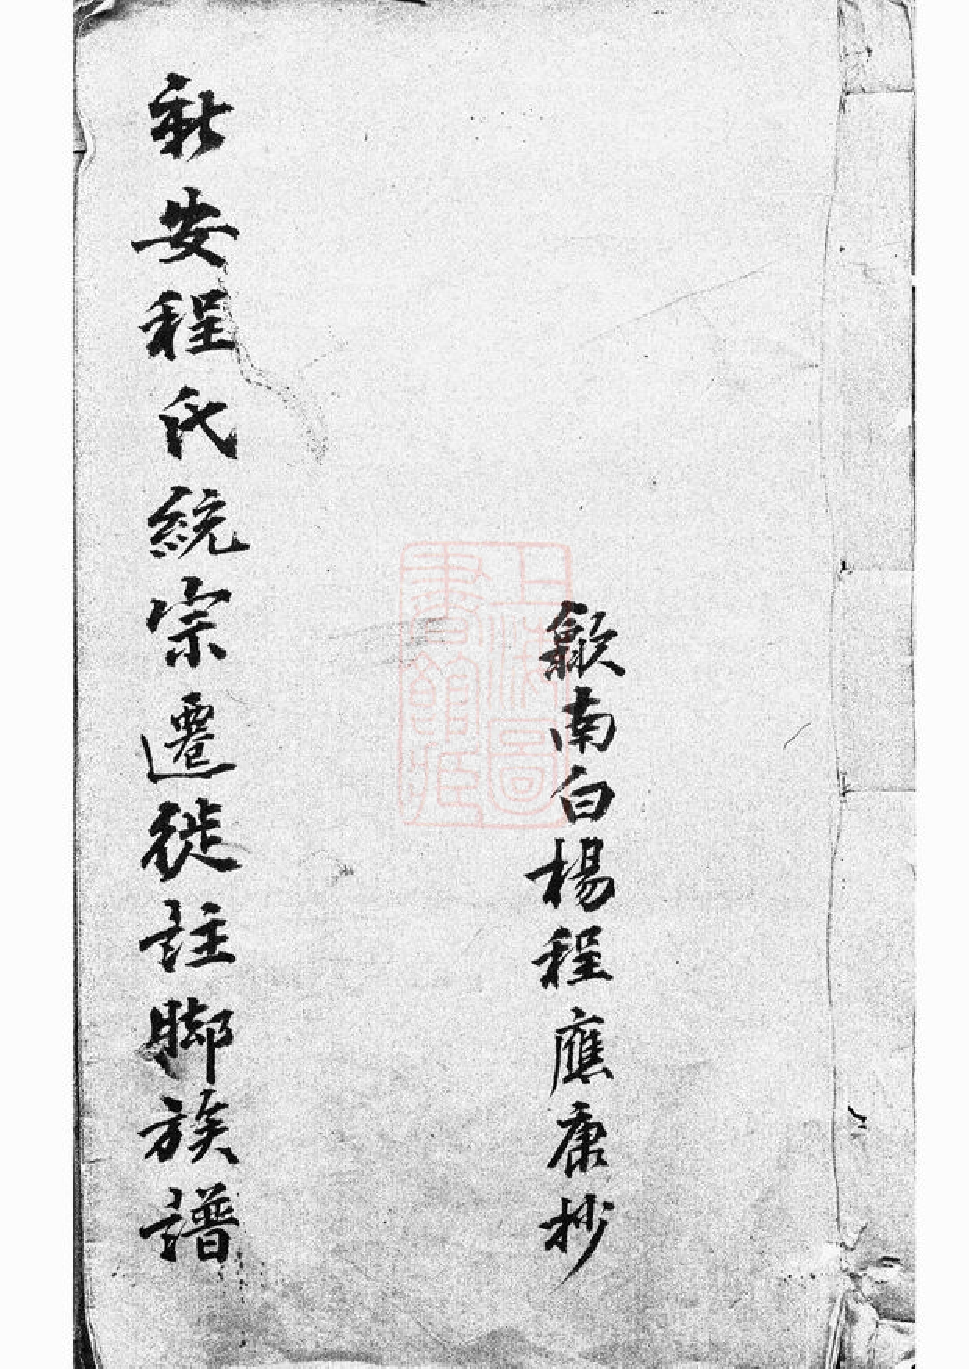 歙南白楊程應康抄
新安程氏統宗遷徙註脚族譜
上海圖書館藏